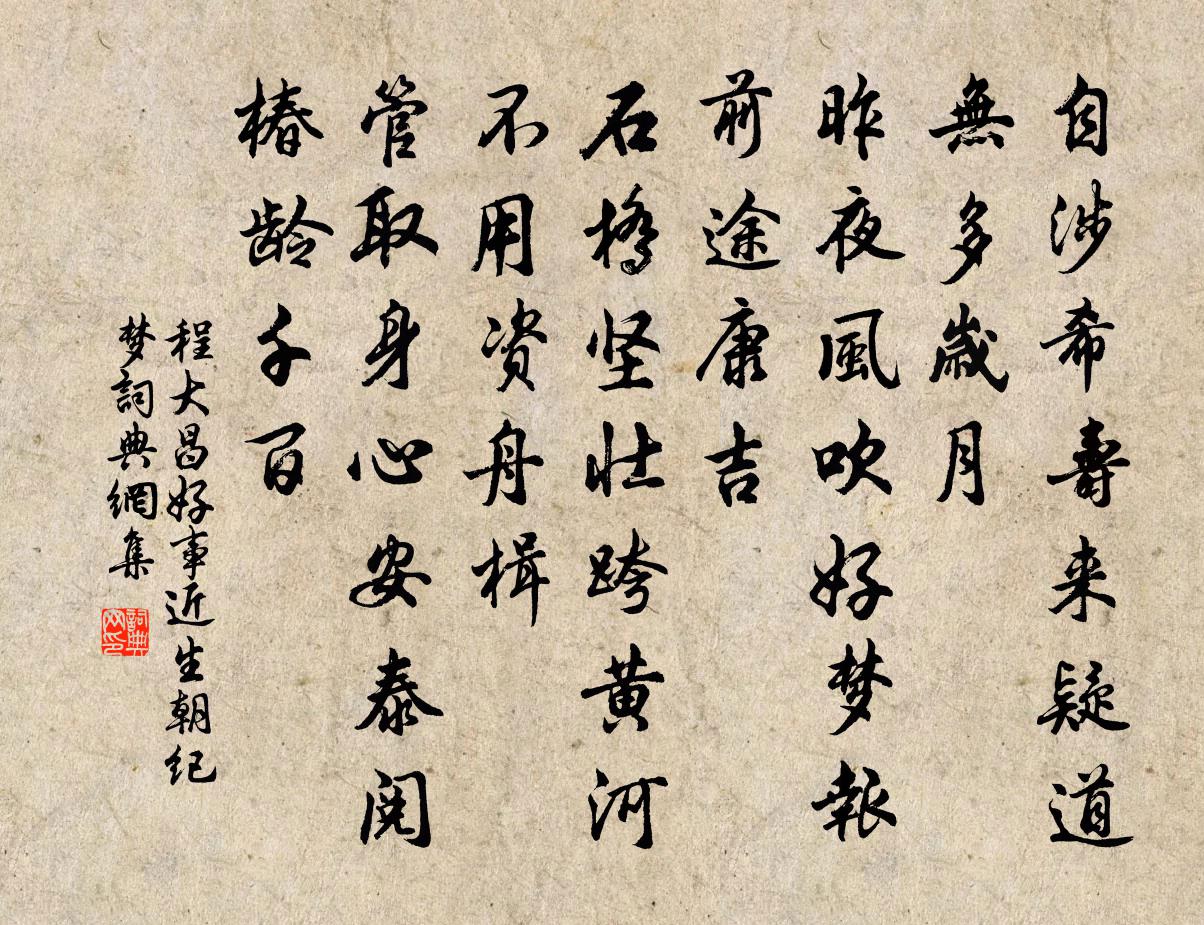 自涉希壽来疑道
無多歲月
昨夜風吹好梦報
前途康吉
石橋坚壮跨黄河
不用资舟楫
管取身心安泰阅
椿龄千百
程大昌好事近生朝纪
梦詞典網集
詞典
网印